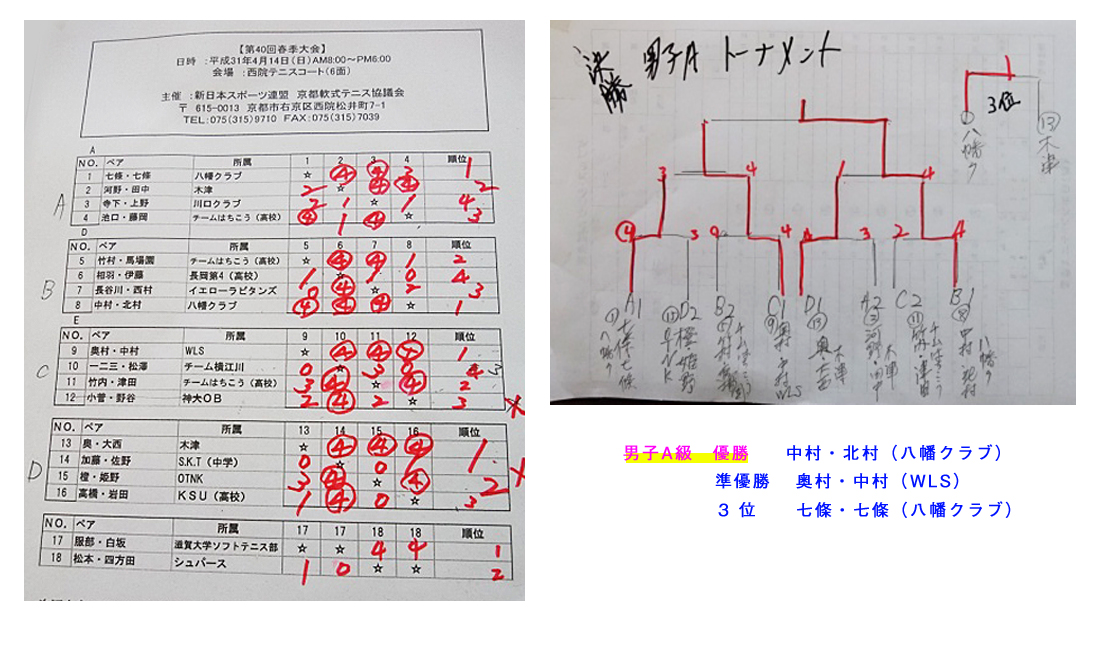 【第40回春季大会】
日時 :平成31年4月14日(日)AM8:00～PM6:00
会場 :西院テニスコート(6面)
主催 :新日本スポーツ連盟 京都軟式テニス協議会
〒 615-0013 京都市右京区西院松井町7-1
TEL:075(315)9710 FAX:075(315)7039
A
NO. ペア 所属 1 2 3 4 順位
1 七條・七條 八幡クラブ ☆ ④ ④ 3 1
2 河野・田中 木津 2 ☆ ④ ④ 2
3 寺下・上野 川口クラブ 2 1 ☆ 1 4
4 池口・藤岡 チームはちこう(高校) ④ 1 ④ ☆ 3
A
D
NO. ペア 所属 5 6 7 8 順位
5 竹村・馬場園 チームはちこう(高校) ☆ ④ ④ 1 2
6 相羽・伊藤 長岡第4(高校) 1 ☆ 1 0 4
7 長谷川・西村 イエローラビタンズ 0 ④ ☆ 2 3
8 中村・北村 八幡クラブ ④ ④ ④ ☆ 1
B
E
NO. ペア 所属 9 10 11 12 順位
9 奥村・中村 WLS ☆ ④ ④ ④ 1
10 一二三・松澤 チーム横江川 0 ☆ 3 0
11 竹内・津田 チームはちこう(高校) 3 ④ ☆ ④ 2
12 小菅・野谷 神大OB 2 ④ 2 ☆ 3
C
NO. ペア 所属 13 14 15 16 順位
13 奥・大西 木津 ☆ ④ ④ ④ 1
14 加藤・佐野 S.K.T(中学) 0 ☆ 0 1
15 橙・姫野 OTNK 3 ④ ☆ ④ 2
16 高橋・岩田 KSU(高校) 1 ④ 0 ☆ 3
D
NO. ペア 所属 17 17 18 18 順位
17 服部・白坂 滋賀大学ソフトテニス部 ☆ ☆ 4 4 1
18 松本・四方田 シュパース 1 0 ☆ ☆ 2
決勝 男子A トーナメント
3位
八幡ク
⑬木津
3 4 1 4
④ 3 4 3 2 4
A1 D2 B2 C1 D1 A2 C2 B1
男子A級 優勝 中村・北村（八幡クラブ）
準優勝 奥村・中村（WLS）
3 位 七條・七條（八幡クラブ）